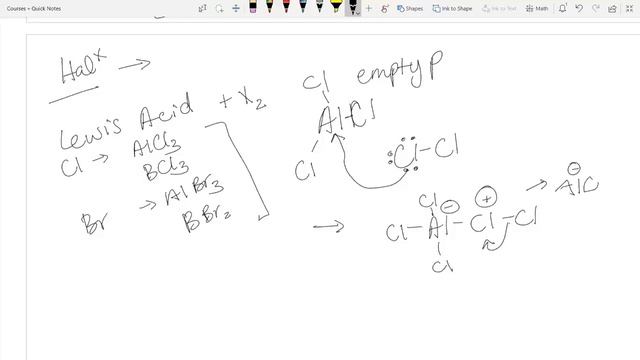 Courses + Quick Notes
Shapes
Ink to Shape
Ink to Text
Math
Hal^x →
Lewis Acid + X₂
Cl → AlCl₃
BCl₃
Br → AlBr₃
BBr₂
empty P
Cl
Al-Cl
Cl
Cl-Cl
→
Cl
Cl-Al-Cl-Cl
⊖ ⊕
Cl
→ AlC
⊖